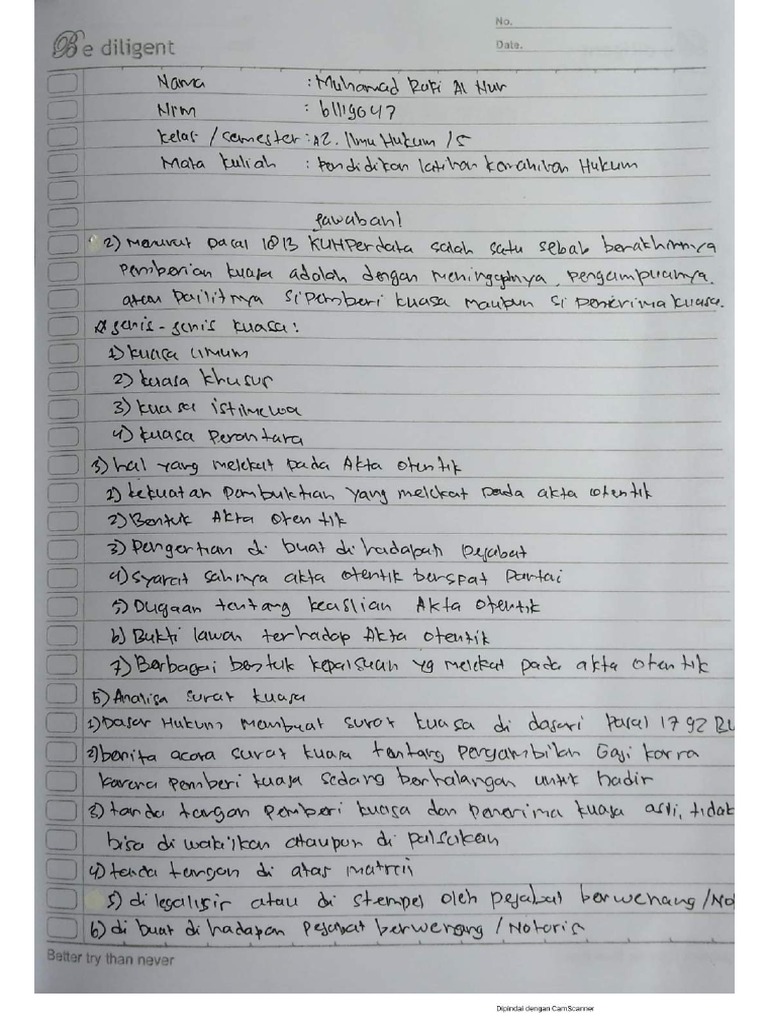 No.
Be diligent
Date.
Nama : Muhamad Rafi Al Nur
Nrm : 61119047
Kelas / semester : A2. Ilmu Hukum / 5
Mata kuliah : Pendidikan latihan kemahiran Hukum
Jawaban!
2) Menurut pasal 1813 KUHPerdata salah satu sebab berakhirnya
pemberian kuasa adalah dengan meninggalnya, pengampuanya.
atau pailitnya si pemberi kuasa maupun si penerima kuasa.
Jenis - jenis kuasa :
1) kuasa umum
2) kuasa khusus
3) kuasa istimewa
4) kuasa Perantara
3) hal yang melekat pada Akta otentik
1) kekuatan pembuktian yang melekat pada akta otentik
2) Bentuk Akta otentik
3) Pengertian di buat di hadapan pejabat
4) syarat sahnya akta otentik bersfat Partai
5) Dugaan tentang keaslian Akta otentik
6) Bukti lawan terhadap Akta otentik
7) Berbagai bentuk kepalsuan yg melekat pada akta otentik
5) Analisa surat kuasa
1) Dasar Hukum membuat surat kuasa di dasari Pasal 1792 BU
2) berita acara surat kuasa tentang pengambilan Gaji karra
karena pemberi kuasa sedang berhalangan untuk hadir
3) tanda tangan pemberi kuasa dan penerima kuasa asli, tidak
bisa di wakilkan ataupun di palsukan
4) tanda tangan di atas matrei
5) di legalisir atau di stempel oleh pejabat berwenang / No
6) di buat di hadapan pejabat berwenang / Notoris
Better try than never
Dipindai dengan CamScanner